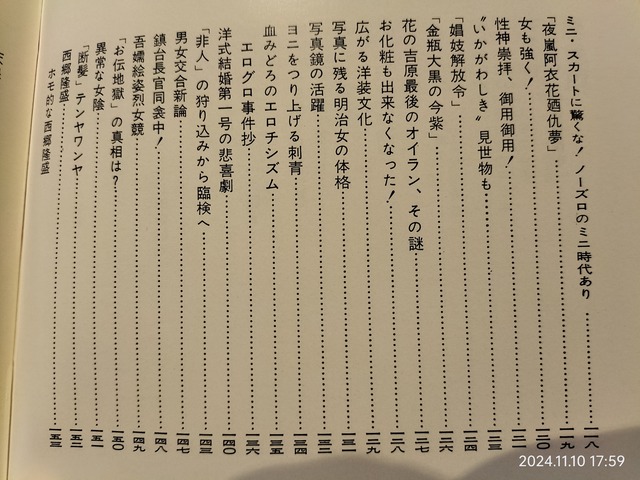 ミニ・スカートに驚くな！ノーズロのミニ時代あり……一一八
「夜嵐阿衣花廼仇夢」……一一九
女も強く！……一二〇
性神崇拝、御用御用！……一二一
〝いかがわしき〟見世物も……一二三
「娼妓解放令」……一二四
「金瓶大黒の今紫」……一二六
花の吉原最後のオイラン、その謎……一二七
お化粧も出来なくなった！……一二八
広がる洋装文化……一二九
写真に残る明治女の体格……一三一
写真鏡の活躍……一三二
ヨニをつり上げる刺青……一三四
血みどろのエロチシズム……一三五
エログロ事件抄……一三六
洋式結婚第一号の悲喜劇……一四〇
「非人」の狩り込みから臨検へ……一四三
男女交合新論……一四七
鎮台長官同衾中！……一四八
吾嬬絵姿烈女競……一四九
「お伝地獄」の真相は？……一五〇
異常な女陰……一五一
「断髪」テンヤワンヤ……一五二
西郷隆盛……一五三
ホモ的な西郷隆盛……一五三
2024.11.10 17:59